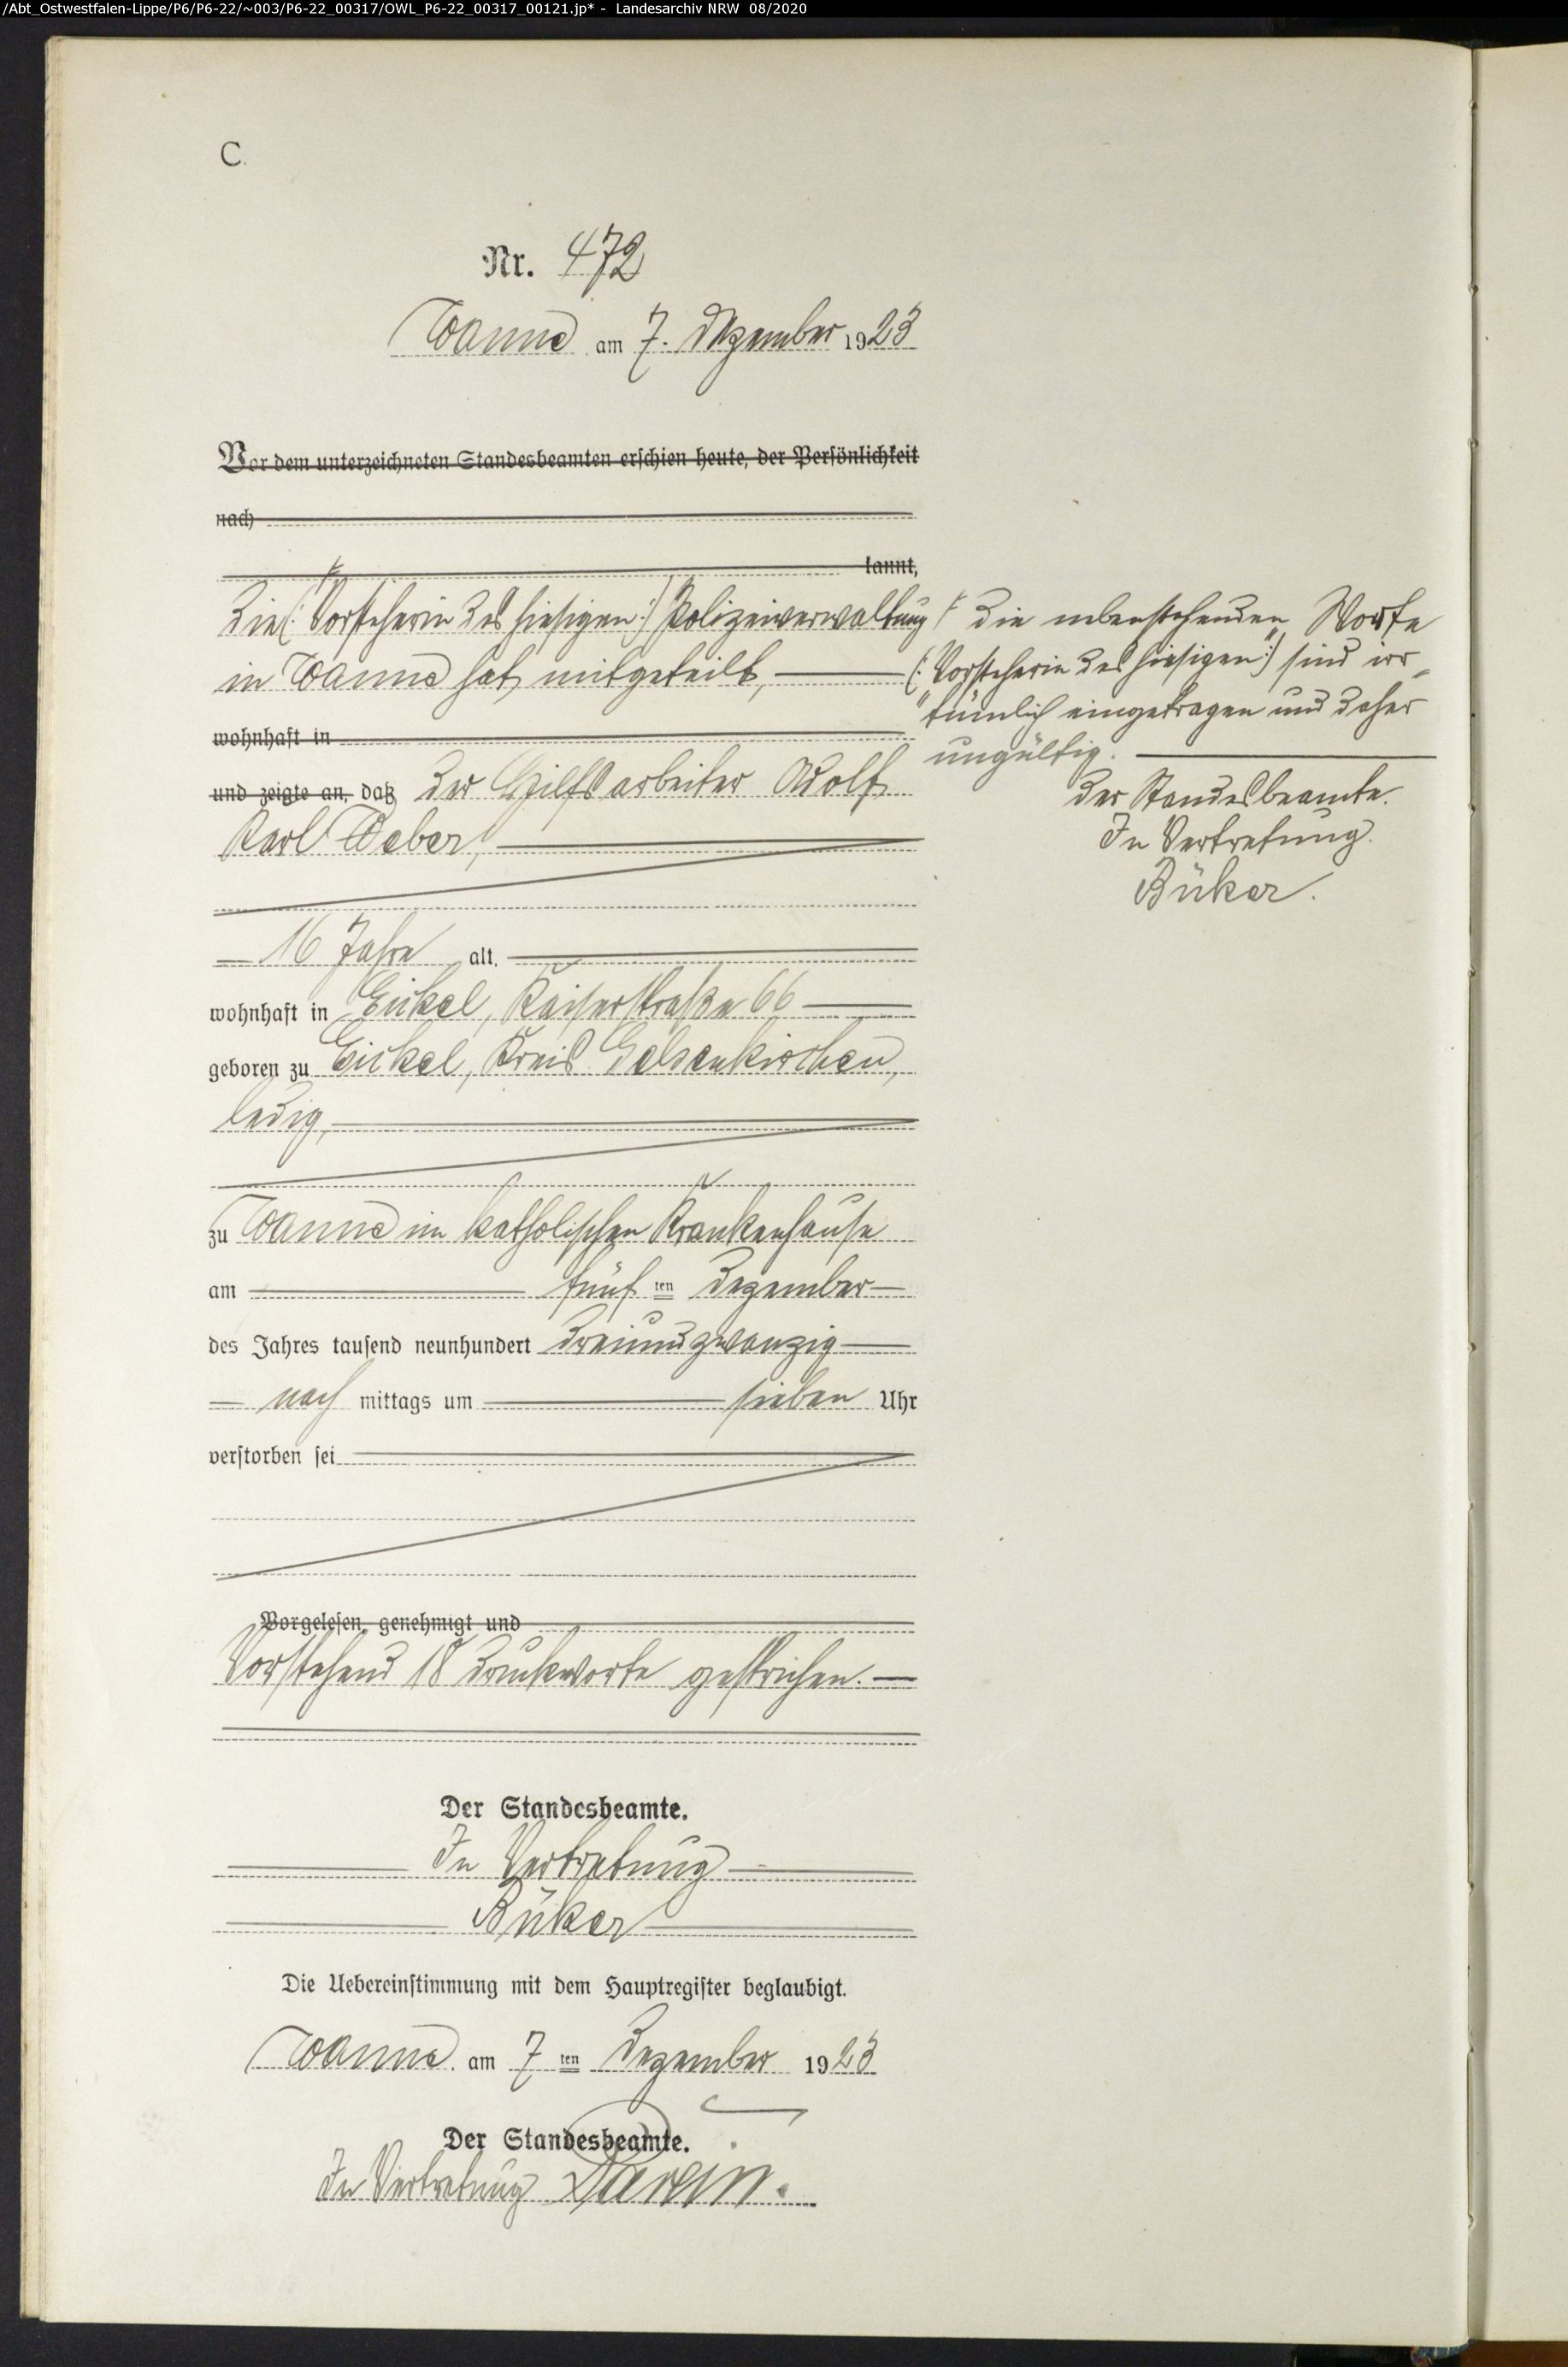 /Abt_Ostwestfalen-Lippe/P6/P6-22/~003/P6-22_00317/OWL_P6-22_00317_00121.jp* - Landesarchiv NRW 08/2020
C.
Nr. 472
Wanne am 7. Dezember 1923
Vor dem unterzeichneten Standesbeamten erschien heute, der Persönlichkeit
nach
kannt,
Die (: Vorsteherin des hiesigen :) Polizeiverwaltung
in Wanne hat mitgeteilt,
wohnhaft in
und zeigte an, daß der Hilfsarbeiter Adolf
Karl Weber,
16 Jahre alt,
wohnhaft in Eickel, Kaiserstraße 66
geboren zu Eickel, Kreis Gelsenkirchen,
ledig,
zu Wanne im katholischen Krankenhause
am fünf ten Dezember
des Jahres tausend neunhundert dreiundzwanzig
nach mittags um sieben Uhr
verstorben sei
Vorgelesen, genehmigt und
Vorstehend 18 Druckworte gestrichen.
Der Standesbeamte.
In Vertretung
Büker
Die Uebereinstimmung mit dem Hauptregister beglaubigt.
Wanne am 7 ten Dezember 1923
Der Standesbeamte.
In Vertretung
Die nebenstehenden Worte
(: Vorsteherin des hiesigen :) sind irr-
tümlich eingetragen und daher
ungültig.
Der Standesbeamte.
In Vertretung.
Büker.